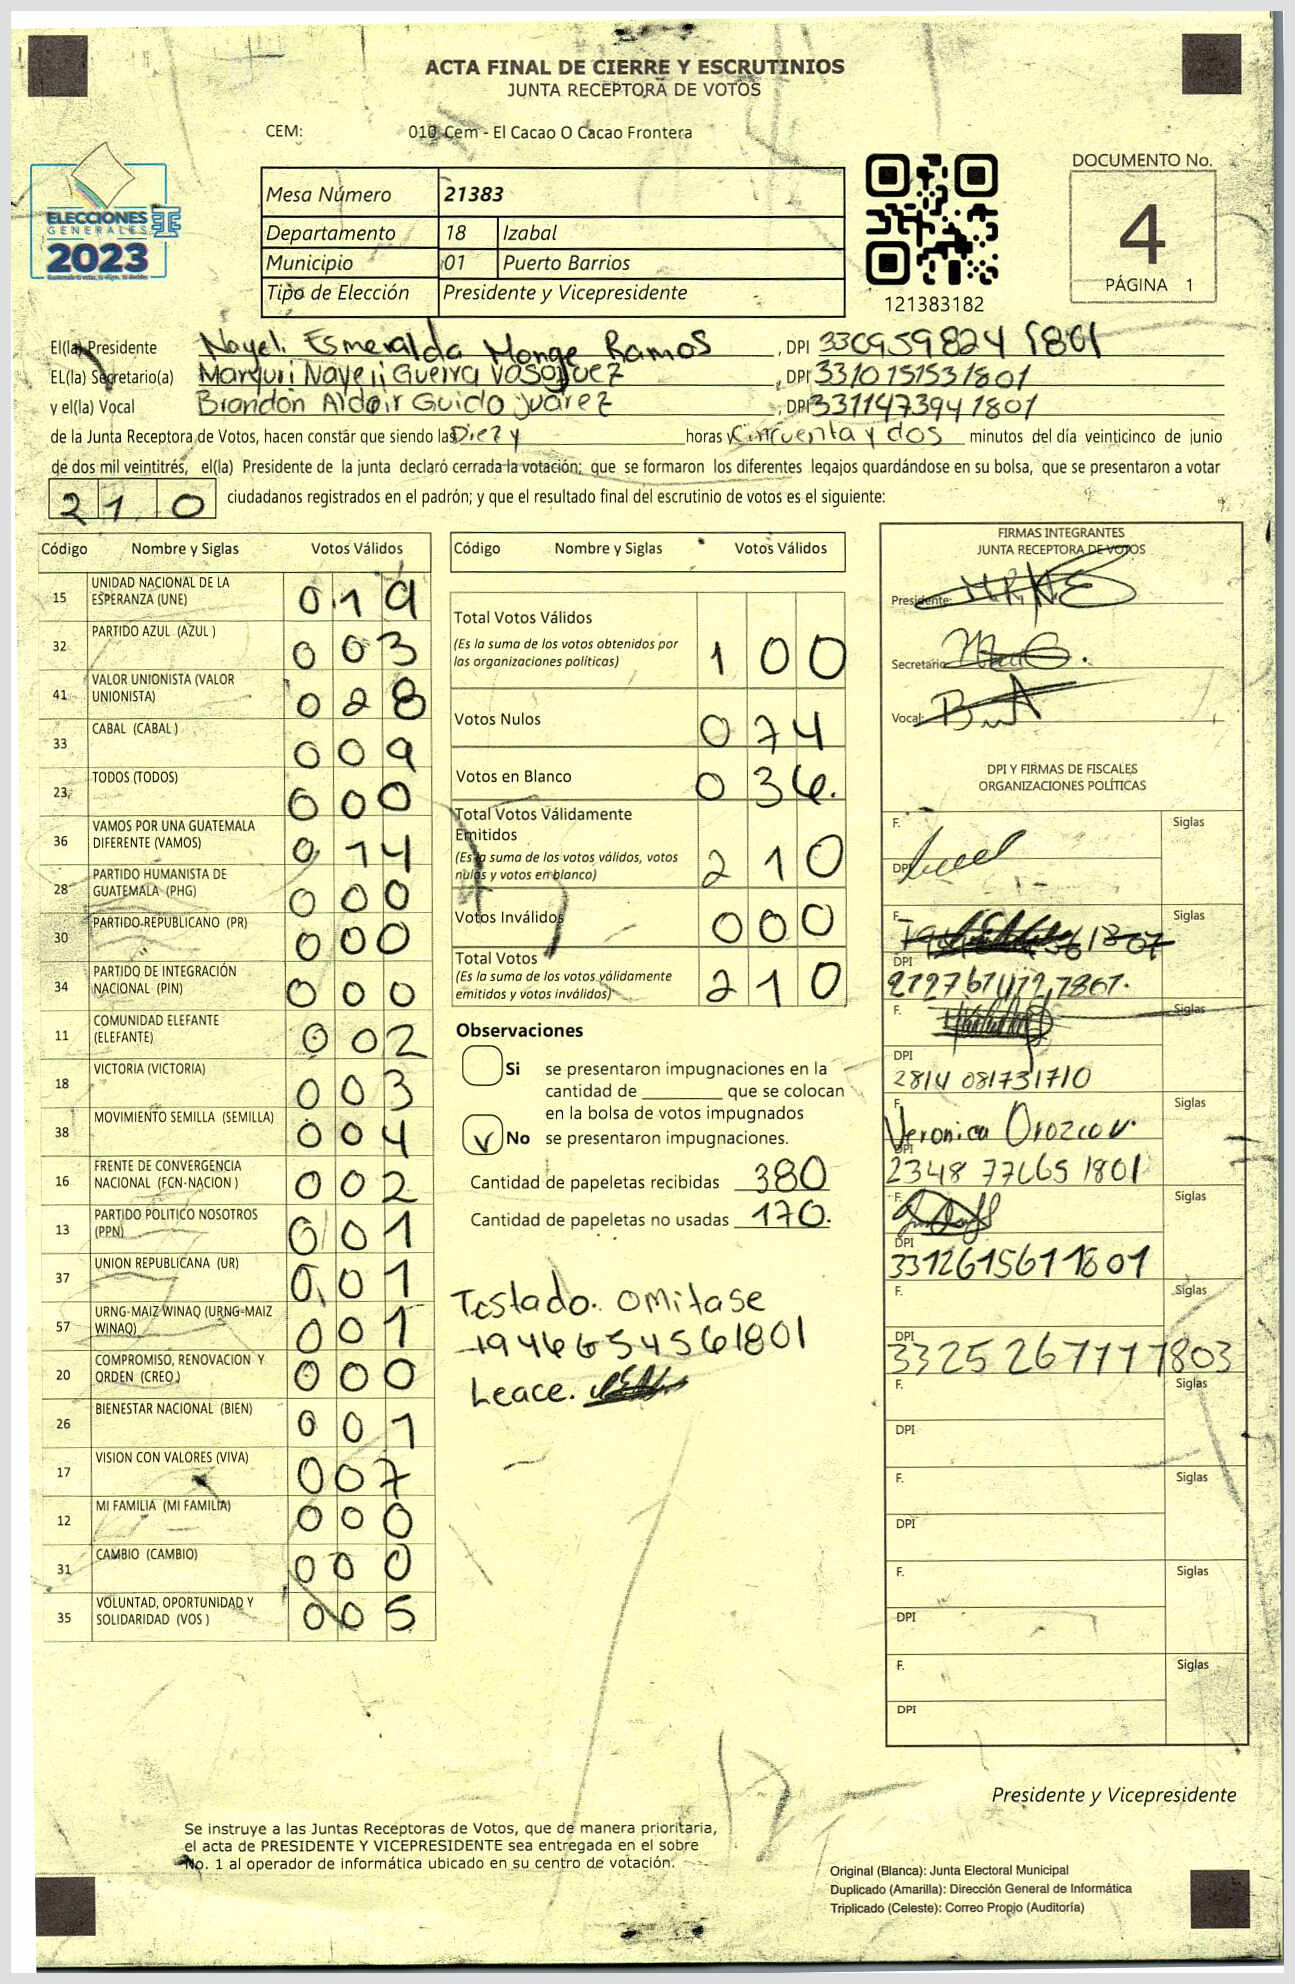 ACTA FINAL DE CIERRE Y ESCRUTINIOS
JUNTA RECEPTORA DE VOTOS
CEM: 010 Cem - El Cacao O Cacao Frontera
ELECCIONES
GENERALES
2023
Mesa Número 21383
Departamento 18 Izabal
Municipio 01 Puerto Barrios
Tipo de Elección Presidente y Vicepresidente
121383182
DOCUMENTO No.
4
PÁGINA 1
El(la) Presidente Nayeli Esmeralda Monge Ramos , DPI 330959824 1801
EL(la) Secretario(a) Maryuri Nayeli Guerra Vasquez , DPI 3310151531801
y el(la) Vocal Brandon Aldair Guido juarez , DPI 3311473941801
de la Junta Receptora de Votos, hacen constar que siendo las Diez y horas Cincuenta y dos minutos del día veinticinco de junio
de dos mil veintitrés, el(la) Presidente de la junta declaró cerrada la votación; que se formaron los diferentes legajos guardándose en su bolsa, que se presentaron a votar
210 ciudadanos registrados en el padrón; y que el resultado final del escrutinio de votos es el siguiente:
Código Nombre y Siglas Votos Válidos
15 UNIDAD NACIONAL DE LA ESPERANZA (UNE) 019
32 PARTIDO AZUL (AZUL ) 003
41 VALOR UNIONISTA (VALOR UNIONISTA) 028
33 CABAL (CABAL ) 009
23 TODOS (TODOS) 000
36 VAMOS POR UNA GUATEMALA DIFERENTE (VAMOS) 014
28 PARTIDO HUMANISTA DE GUATEMALA (PHG) 000
30 PARTIDO REPUBLICANO (PR) 000
34 PARTIDO DE INTEGRACIÓN NACIONAL (PIN) 000
11 COMUNIDAD ELEFANTE (ELEFANTE) 002
18 VICTORIA (VICTORIA) 003
38 MOVIMIENTO SEMILLA (SEMILLA) 004
16 FRENTE DE CONVERGENCIA NACIONAL (FCN-NACION ) 002
13 PARTIDO POLITICO NOSOTROS (PPN) 001
37 UNION REPUBLICANA (UR) 001
57 URNG-MAIZ WINAQ (URNG-MAIZ WINAQ) 001
20 COMPROMISO, RENOVACION Y ORDEN (CREO ) 000
26 BIENESTAR NACIONAL (BIEN) 001
17 VISION CON VALORES (VIVA) 007
12 MI FAMILIA (MI FAMILIA) 000
31 CAMBIO (CAMBIO) 000
35 VOLUNTAD, OPORTUNIDAD Y SOLIDARIDAD (VOS ) 005
Código Nombre y Siglas Votos Válidos
Total Votos Válidos 100
(Es la suma de los votos obtenidos por
las organizaciones políticas)
Votos Nulos 074
Votos en Blanco 036.
Total Votos Válidamente
Emitidos 210
(Es la suma de los votos válidos, votos
nulos y votos en blanco)
Votos Inválidos 000
Total Votos 210
(Es la suma de los votos válidamente
emitidos y votos inválidos)
Observaciones
Si se presentaron impugnaciones en la
cantidad de ________ que se colocan
en la bolsa de votos impugnados
v No se presentaron impugnaciones.
Cantidad de papeletas recibidas 380
Cantidad de papeletas no usadas 170.
Testado. omitase
1946654561801
Leace.
FIRMAS INTEGRANTES
JUNTA RECEPTORA DE VOTOS
Presidente:
Secretario
Vocal:
DPI Y FIRMAS DE FISCALES
ORGANIZACIONES POLÍTICAS
F. Siglas
DPI
F. Siglas
DPI
F. Siglas
DPI 2814 081731710
F. Veronica Orozco v. Siglas
DPI 2348 77665 1801
F. Siglas
DPI 3312615611801
F. Siglas
DPI 3325 267777803
F. Siglas
DPI
F. Siglas
DPI
F. Siglas
DPI
F. Siglas
DPI
Presidente y Vicepresidente
Se instruye a las Juntas Receptoras de Votos, que de manera prioritaria,
el acta de PRESIDENTE Y VICEPRESIDENTE sea entregada en el sobre
No. 1 al operador de informática ubicado en su centro de votación.
Original (Blanca): Junta Electoral Municipal
Duplicado (Amarilla): Dirección General de Informática
Triplicado (Celeste): Correo Propio (Auditoría)